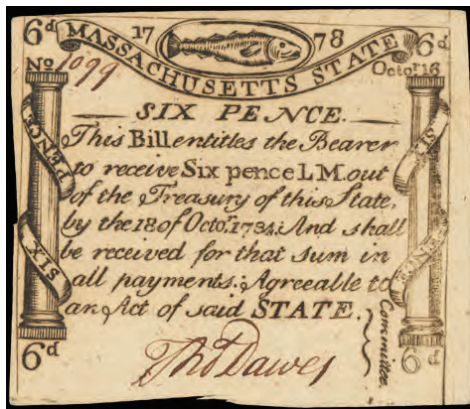 6d 17 78 6d
MASSACHUSETTS STATE
No 1099 Octor. 16
SIX PENCE.
This Bill entitles the Bearer
to receive Six pence L M. out
of the Treasury of this State,
by the 18 of Octo. 1784; And shall
be received for that sum in
all payments; Agreeable to
an Act of said STATE.
SIX PENCE
SIX PENCE
Committee.
6d 6d
Tho Dawes